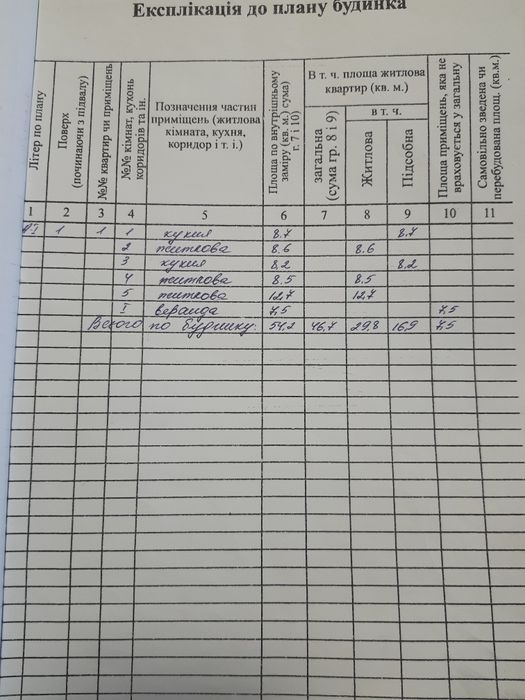 Експлікація до плану будинка
Літер по плану
Поверх (починаючи з підвалу)
№№ квартир чи приміщень
№№ кімнат, кухонь коридорів та ін.
Позначення частин приміщень (житлова кімната, кухня, коридор і т. і.)
Площа по внутрішньому заміру (кв. м.) сума) г. 7 і 10)
В т. ч. площа житлова квартир (кв. м.)
загальна (сума гр. 8 і 9)
в т. ч.
Житлова
Підсобна
Площа приміщень, яка не враховується у загальну
Самовільно зведена чи перебудована площ. (кв.м.)
1 2 3 4 5 6 7 8 9 10 11
1 1 1 кухня 8.7 8.7
2 житлова 8.6 8.6
3 кухня 8,2 8,2
4 житлова 8.5 8.5
5 житлова 12,7 12,7
I веранда 7,5 7,5
Всього по будинку: 54,2 46,7 29,8 16,9 7,5